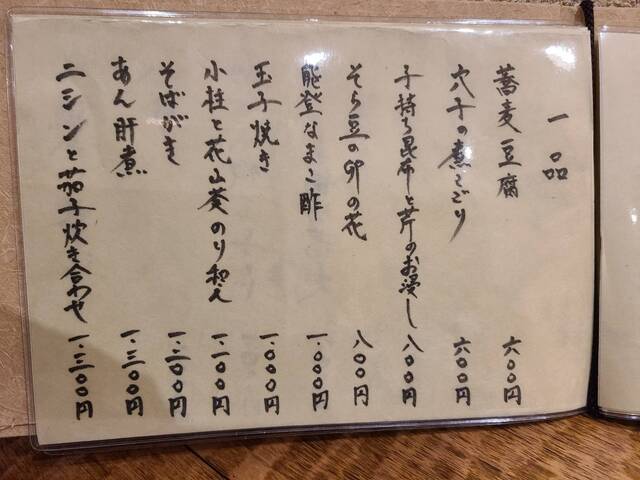 一品
蕎麦豆腐 六〇〇円
穴子の煮こごり 六〇〇円
子持ち昆布と芹のお浸し 八〇〇円
そら豆の卯の花 八〇〇円
能登なまこ酢 一、〇〇〇円
玉子焼き 一、〇〇〇円
小柱と花山葵のり和え 一、一〇〇円
そばがき 一、二〇〇円
あん肝煮 一、三〇〇円
ニシンと茄子炊き合わせ 一、三〇〇円